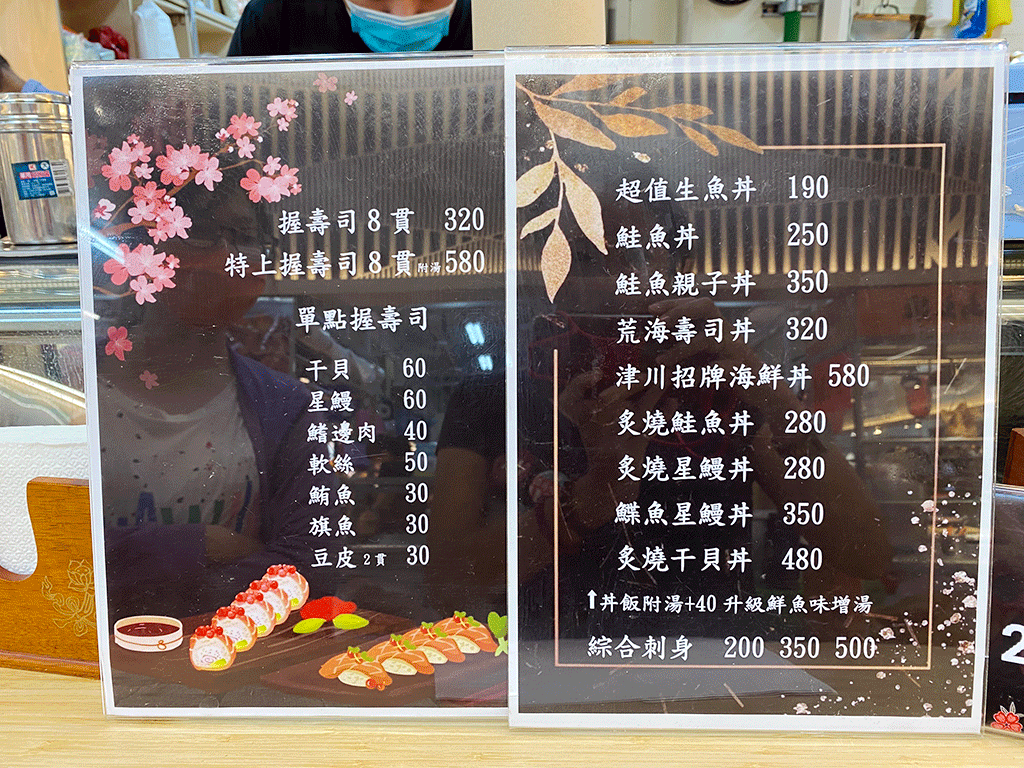 握壽司8貫 320
特上握壽司8貫附湯580
單點握壽司
干貝 60
星鰻 60
鰭邊肉 40
軟絲 50
鮪魚 30
旗魚 30
豆皮2貫 30
超值生魚丼 190
鮭魚丼 250
鮭魚親子丼 350
荒海壽司丼 320
津川招牌海鮮丼 580
炙燒鮭魚丼 280
炙燒星鰻丼 280
鰈魚星鰻丼 350
炙燒干貝丼 480
↑丼飯附湯+40 升級鮮魚味增湯
綜合刺身 200 350 500
2